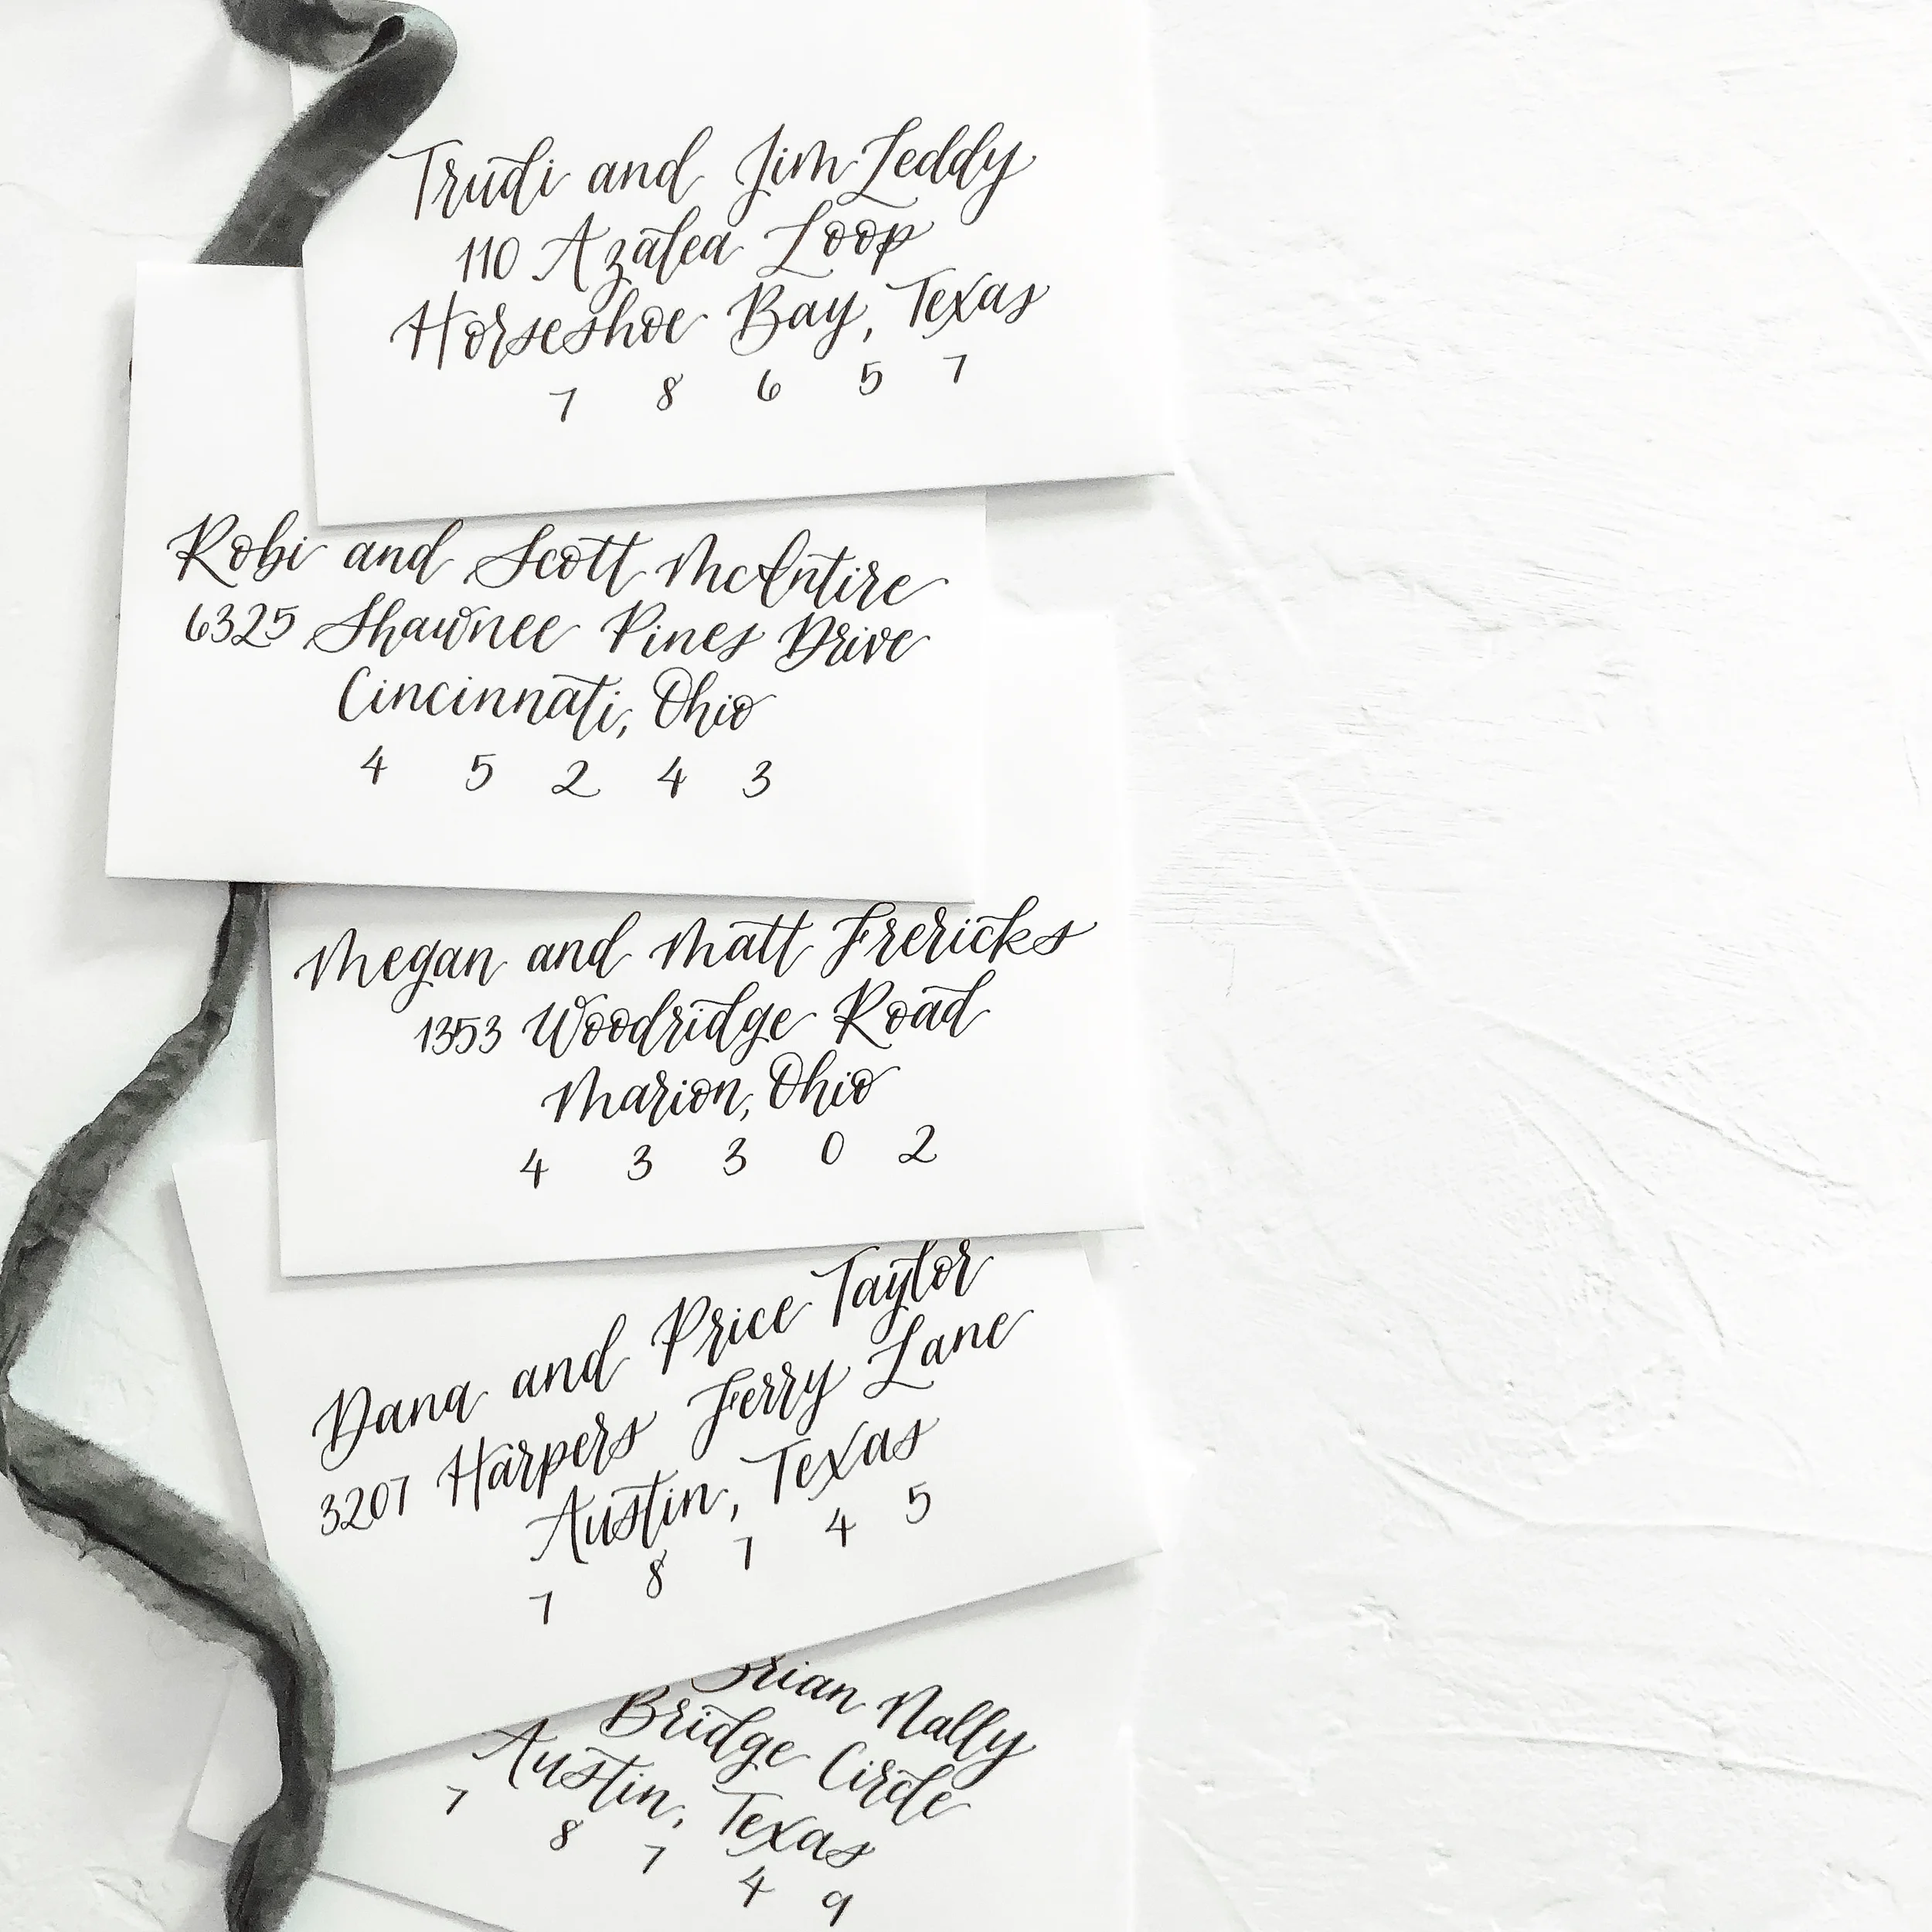 Trudi and Jim Leddy
110 Azalea Loop
Horseshoe Bay, Texas
7 8 6 5 7
Robi and Scott McIntire
6325 Shawnee Pines Drive
Cincinnati, Ohio
4 5 2 4 3
Megan and Matt Frericks
1353 Woodridge Road
Marion, Ohio
4 3 3 0 2
Dana and Price Taylor
3207 Harpers Ferry Lane
Austin, Texas
7 8 7 4 5
Brian Nally
Bridge Circle
Austin, Texas
7 8 7 4 9